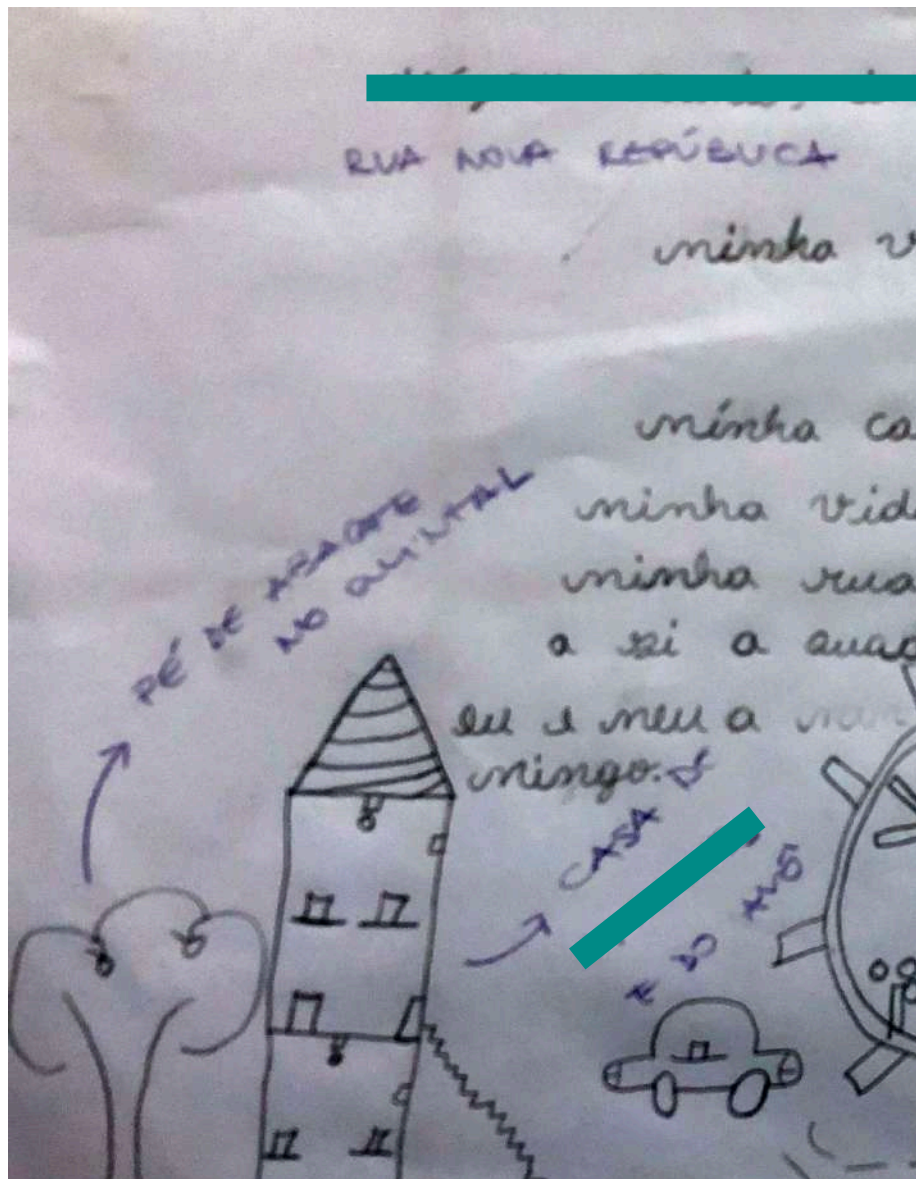 RUA NOVA REPÚBLICA
minha v
minha ca
minha vid
minha rua
a
eu e meu a
mingo.
PÉ DE ABACATE
NO QUINTAL
CASA D
E DO AVÔ